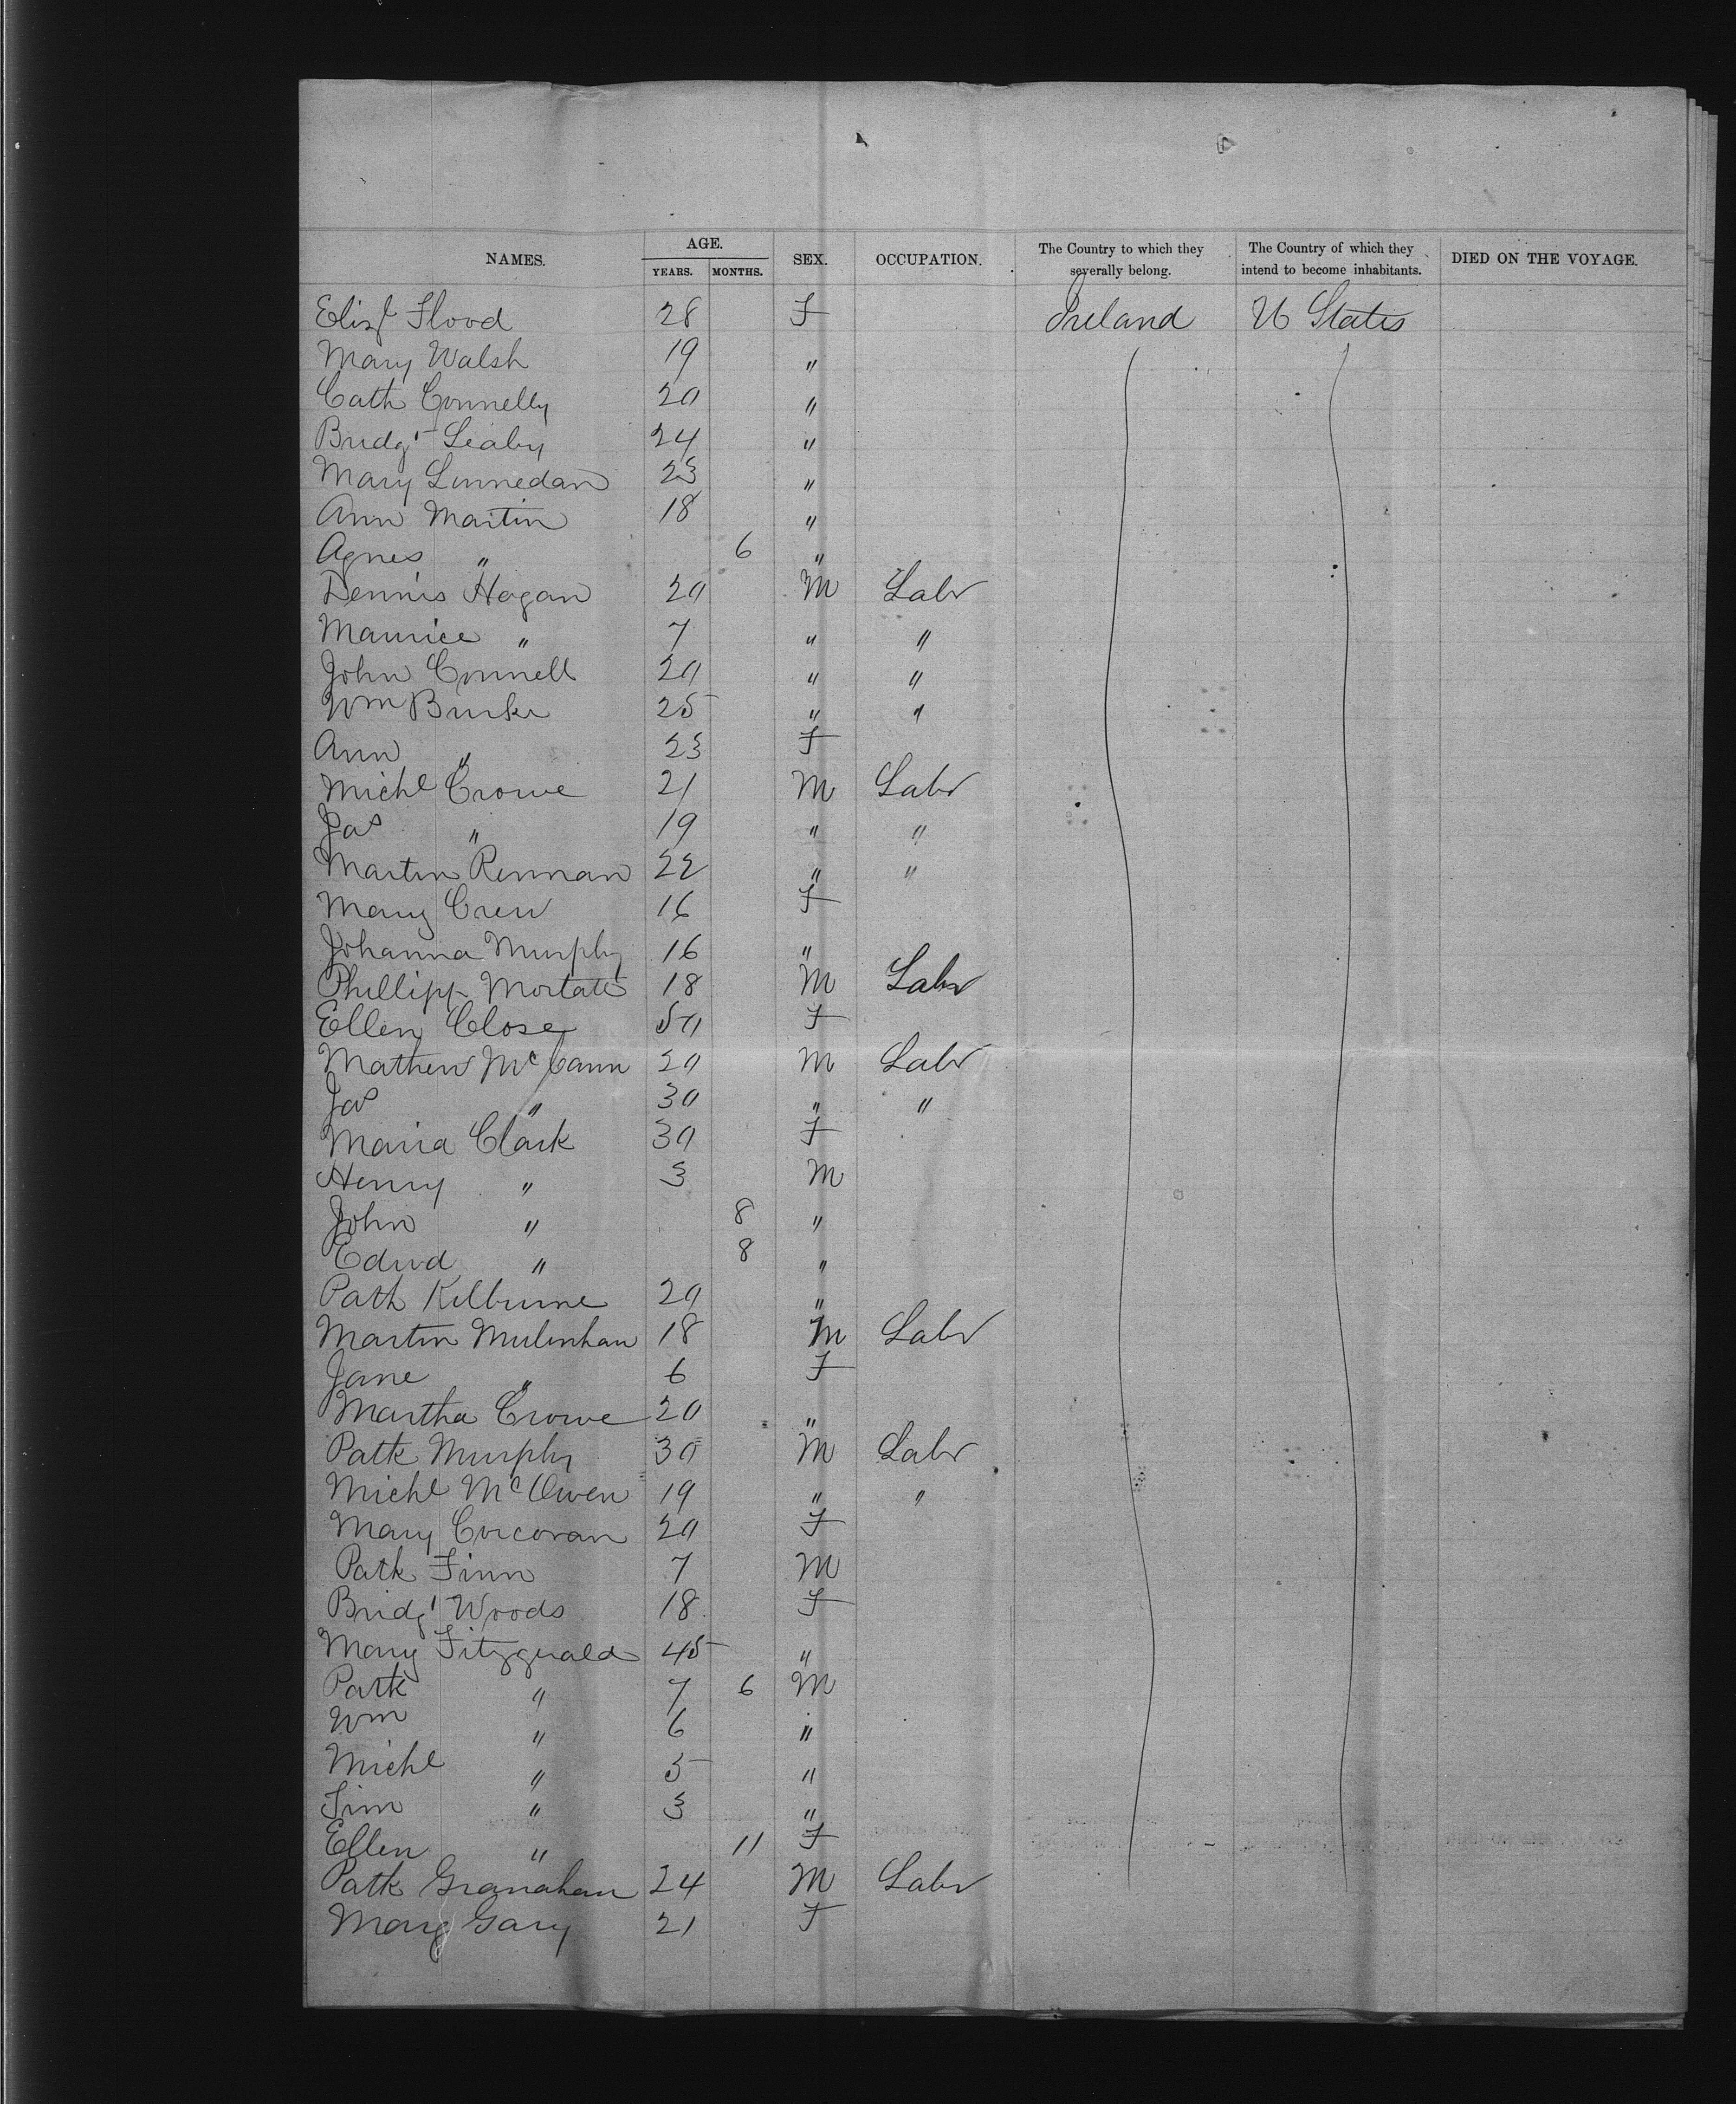 NAMES. AGE. YEARS. MONTHS. SEX. OCCUPATION. The Country to which they severally belong. The Country of which they intend to become inhabitants. DIED ON THE VOYAGE.
Elizt Flood 28 F Ireland U States
Mary Walsh 19 "
Cath Connelly 20 "
Bridgt Leahy 24 "
Mary Linnedan 23 "
Ann Martin 18 "
Agnes " 6 "
Dennis Hogan 20 M Labr
Maurice " 7 " "
John Connell 20 " "
Wm Burke 25 " "
Ann " 23 F
Michl Crowe 21 M Labr
Jas " 19 " "
Martin Rennan 22 " "
Mary Crew 16 F
Johanna Murphy 16 "
Phillipp 18 M Labr
Ellen Close 50 F
Mathew McCann 20 M Labr
Jas " 30 " "
Maria Clark 30 F
Henry " 3 M
John " 8 "
Edwd " 8 "
Path Kilburne 20 "
Martin Mulinhan 18 M Labr
Jane " 6 F
Martha Crowe 20 "
Patk Murphy 30 M Labr
Michl McOwen 19 " "
Mary Corcoran 20 F
Patk Finn 7 M
Bridgt Woods 18 F
Mary Fitzgerald 45 "
Patk " 7 6 M
Wm " 6 "
Michl " 5 "
Tim " 3 "
Ellen " 11 F
Patk Granahan 24 M Labr
Mary Gary 21 F